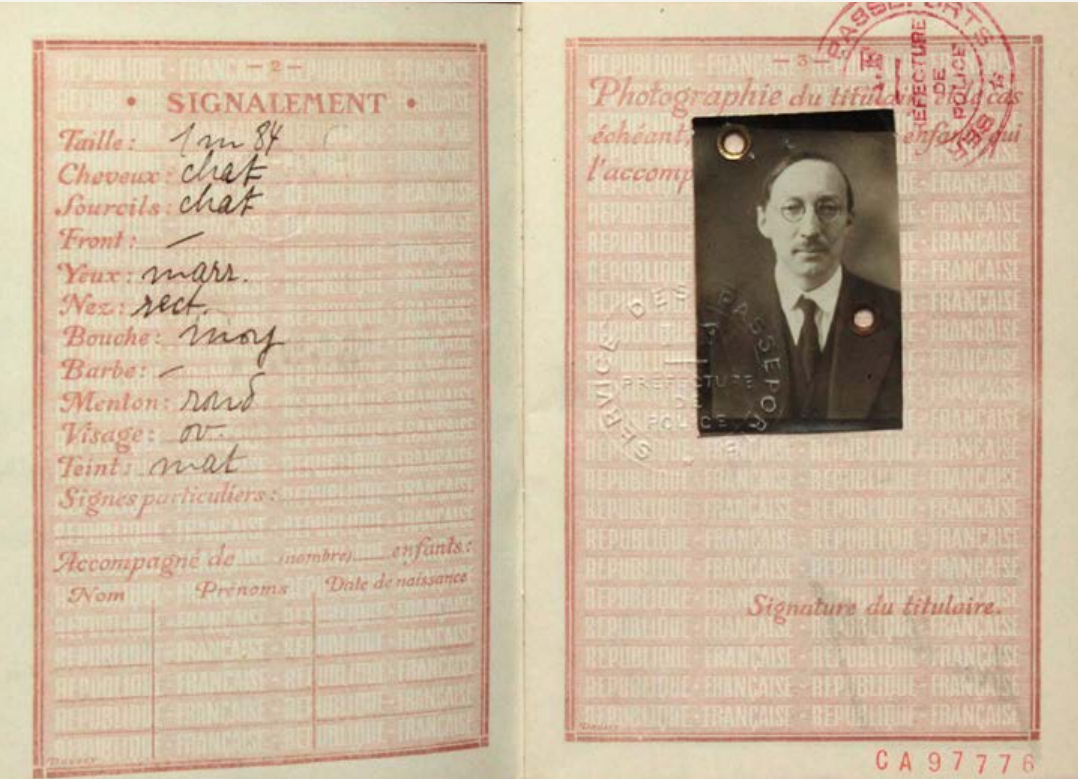 — 2 —
• SIGNALEMENT •
Taille : 1 m 84
Cheveux : chat
Sourcils : chat
Front : —
Yeux : marr.
Nez : rect.
Bouche : moy
Barbe : —
Menton : rond
Visage : ov.
Teint : mat
Signes particuliers :
Accompagné de (nombre) enfants :
Nom Prénoms Date de naissance
— 3 —
Photographie du titulaire et le cas
échéant, enfants qui
l'accomp
SERVICE DES PASSEPORTS
PREFECTURE
DE
POLICE
PASSEPORTS
PREFECTURE
DE
POLICE
Signature du titulaire.
CA97776